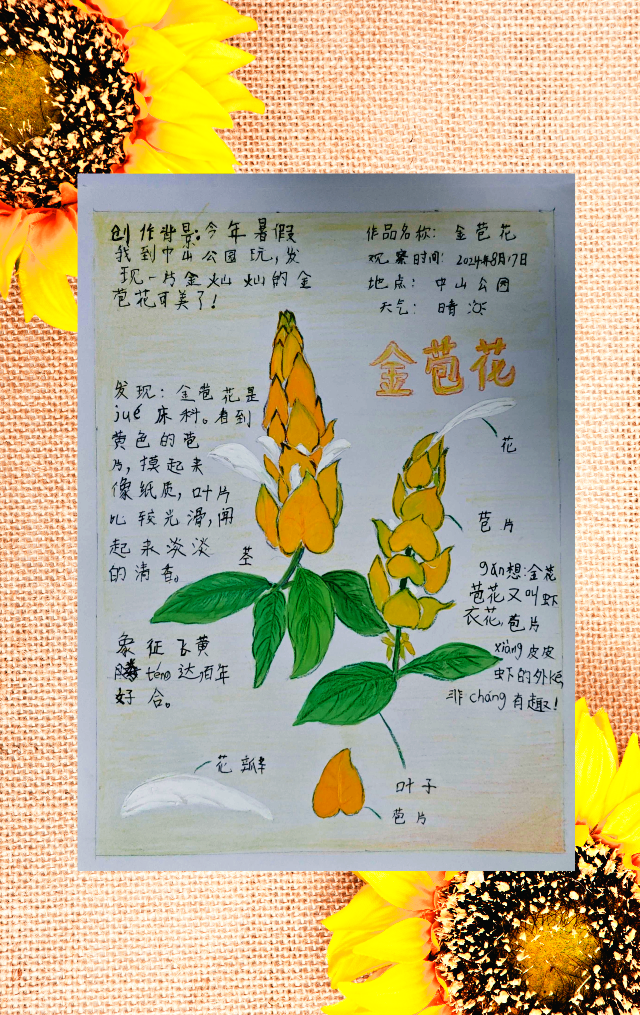 创作背景:今年暑假
我到中山公园玩,发
现一片金灿灿的金
苞花可美了!
作品名称: 金苞花
观察时间: 2024年8月17日
地点: 中山公园
天气: 晴
金苞花
发现: 金苞花是
jué床科。看到
黄色的苞
片,摸起来
像纸质,叶片
比较光滑,闻
起来淡淡
的清香。
茎
花
苞片
gǎn想:金苞
苞花又叫虾
衣花,苞片
xiàng皮皮
虾的外ké,
非cháng有趣!
象征飞黄
téng达,百年
好合。
花瓣
叶子
苞片